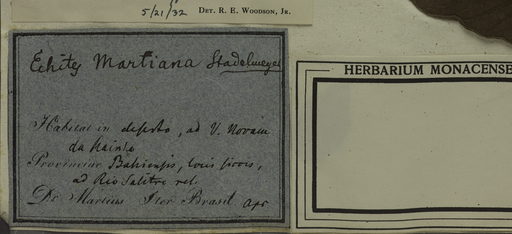 5/21/32 DET. R. E. WOODSON, JR.
Echites Martiana Stadelmeyer
HERBARIUM MONACENSE
Habitat in deserto, ad V. Novam
da Rainha
Provinciae Bahiensis, locis siccis,
ad Rio Salitre rel.
Dr Martius Iter Brasil Apr.